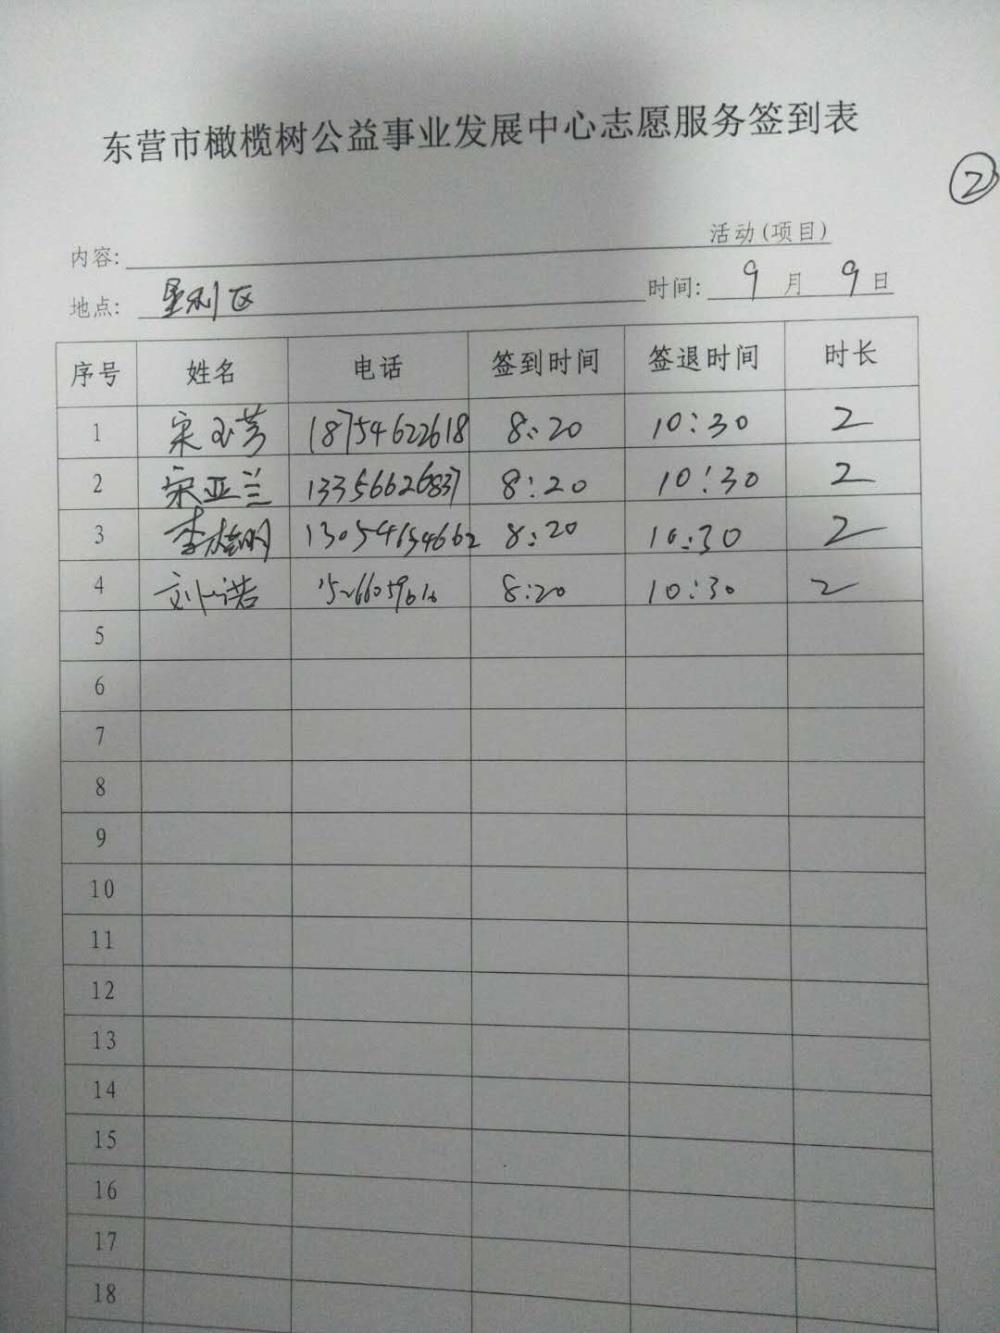 东营市橄榄树公益事业发展中心志愿服务签到表
②
内容: 活动(项目)
地点: 垦利区 时间: 9月9日
序号 姓名 电话 签到时间 签退时间 时长
1 宋玉芳 18754622618 8:20 10:30 2
2 宋亚兰 13356626837 8:20 10:30 2
3 13054654662 8:20 10:30 2
4 8:20 10:30 2
5
6
7
8
9
10
11
12
13
14
15
16
17
18